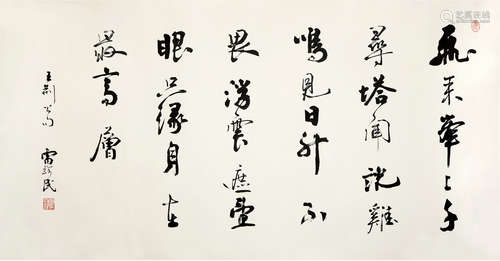 飛来峯上千
尋塔聞說雞
鳴見日升不
畏浮雲遮望
眼只緣身在
最高層
王荆公句 雷民